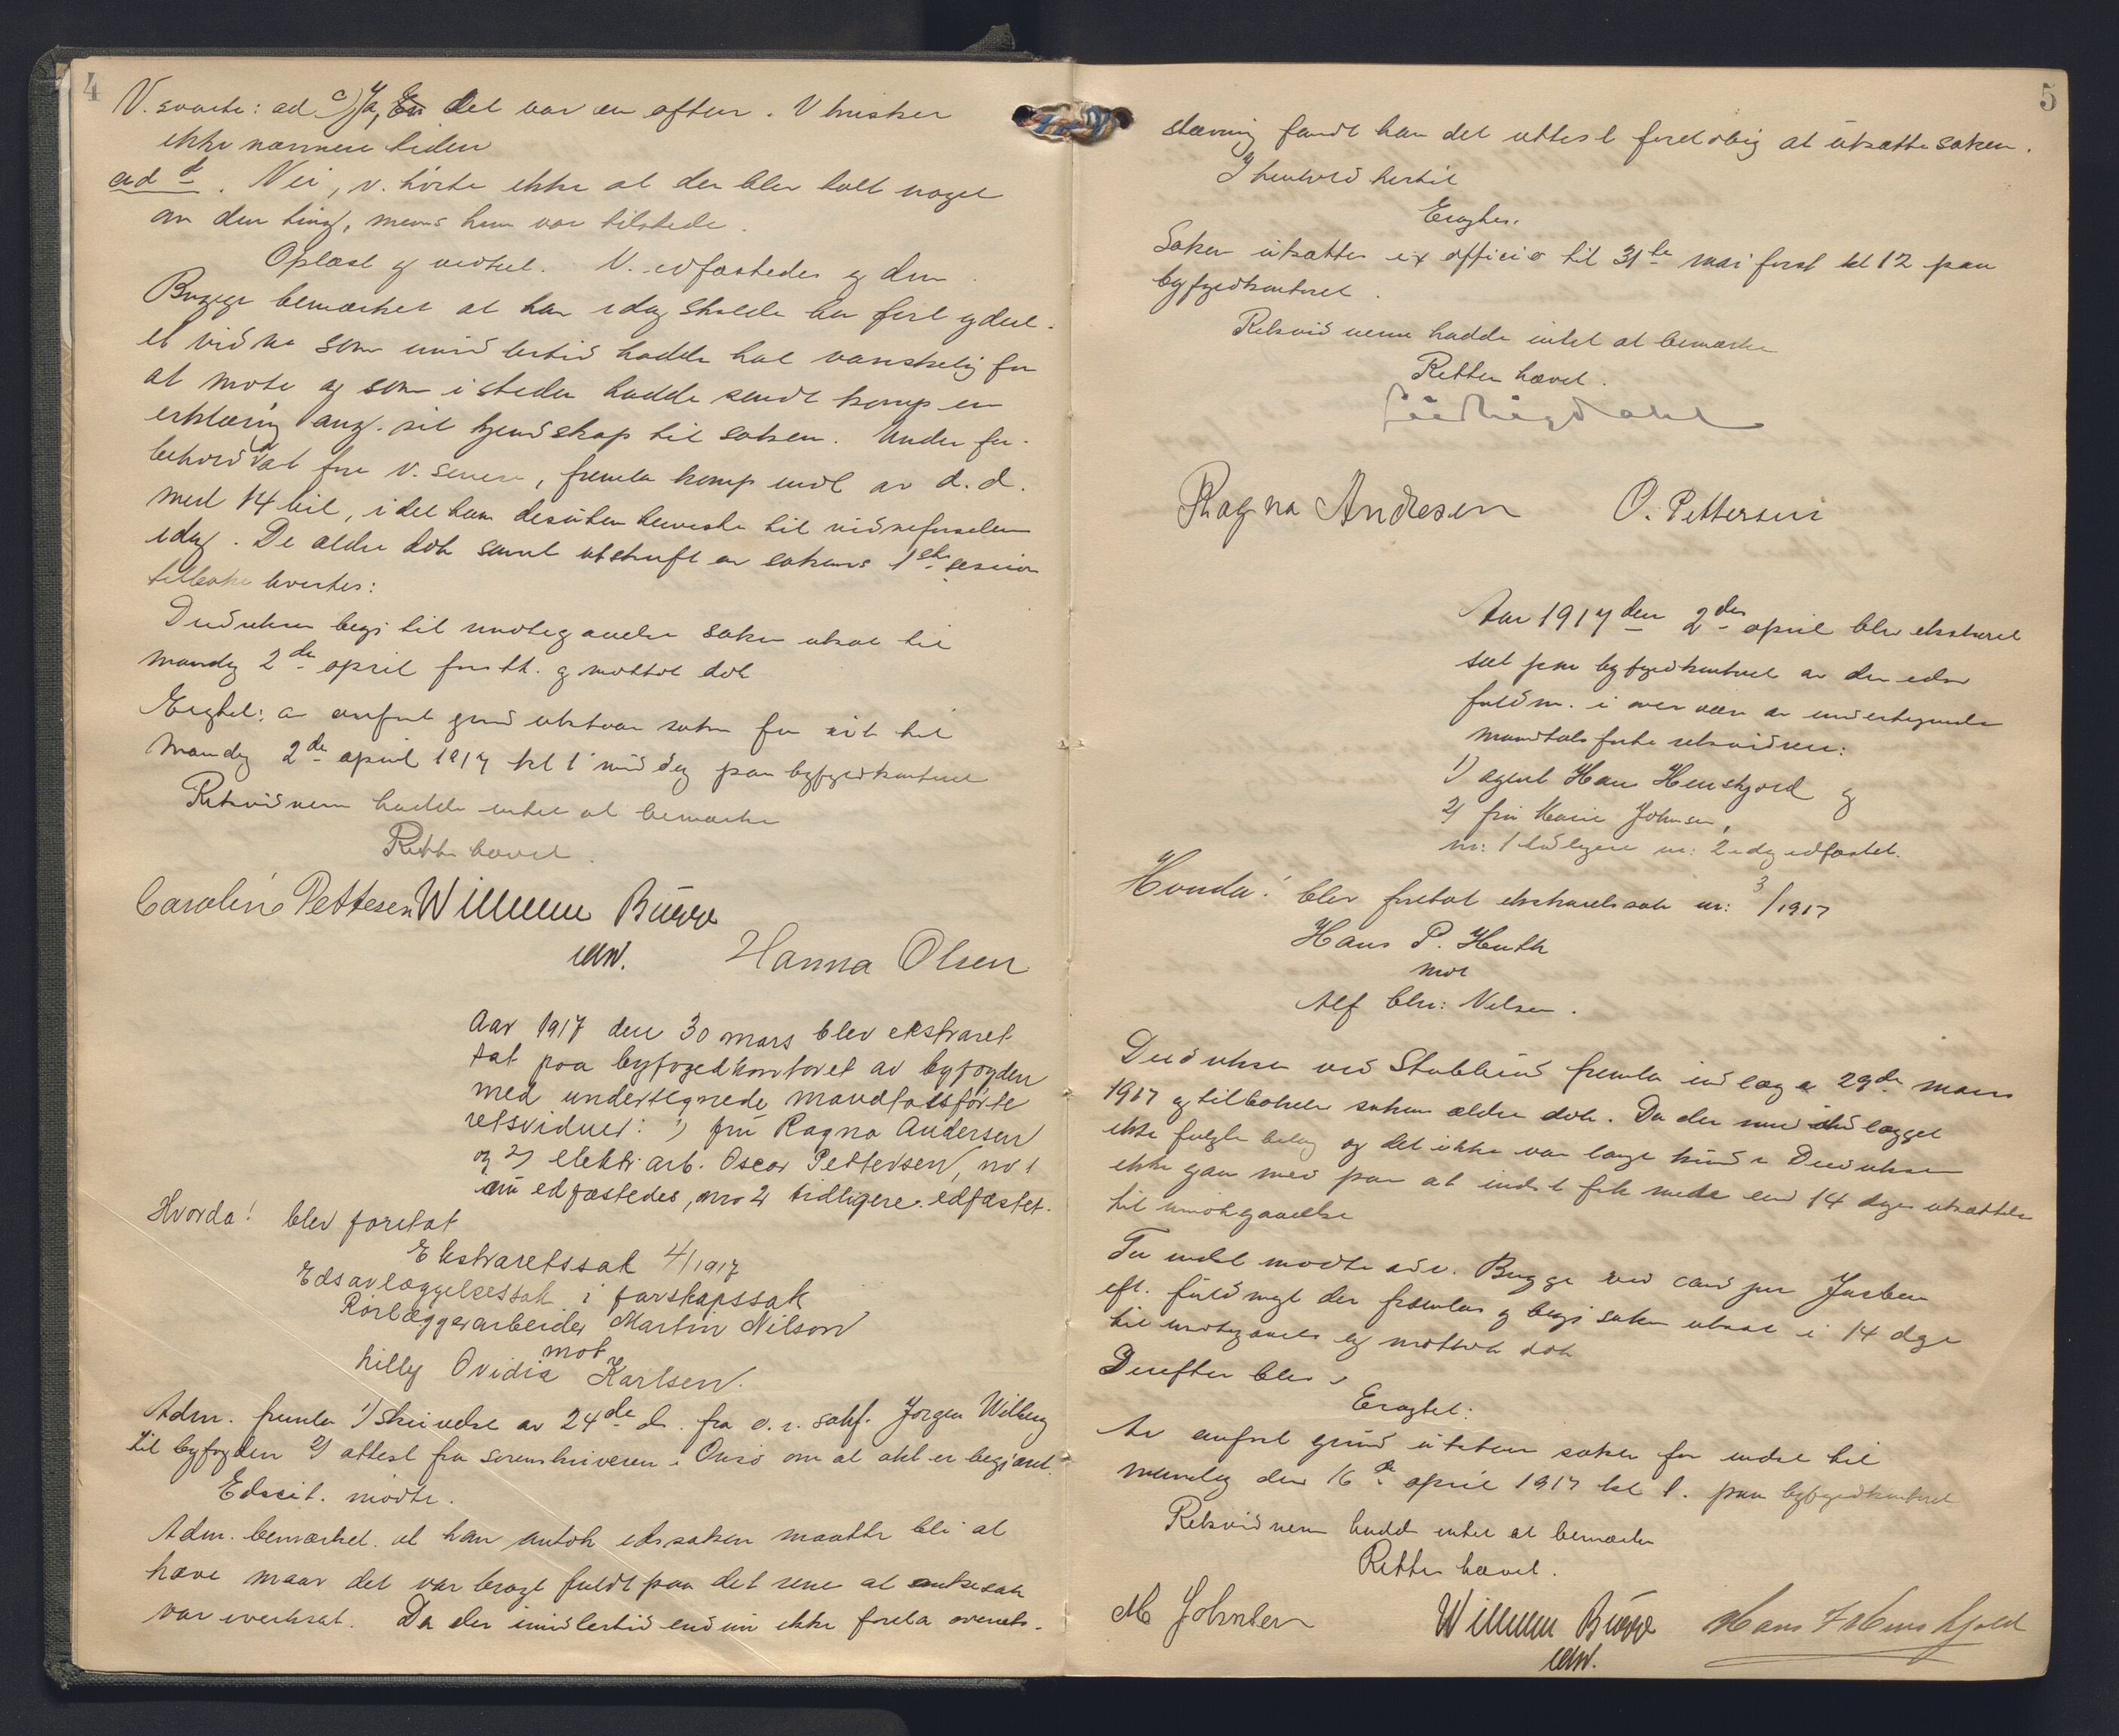 4
V. svarte: ad c) Ja, det var en aften. V husker
ikke nærmere tiden
ad d. Nei, v. hørte ikke at der blev talt noget
om den ting, mens hun var tilstede.
Oplæst og vedtat. V. edfæstedes og dim.
Bugge bemærket at han idag skulde ha ført ydterl.
et vidne som imidlertid hadde hat vanskelig for
at møte og som isteden hadde sendt komp en
erklæring ang. sit kjendskap til saken. Under for-
behold at føre v. senere, fremla komp indl av d.d.
med 14 bil, idet han desuten henviste til vidneførselen
idag. De ældre dok samt utskrift av sakens 1ste session
tilbake levertes:
Deduksen begj til imøtegaaelse saken utsat til
mandag 2de april førstk. og mottok dok
Eragtet: av anført grund utstaar saken for sit til
Mandag 2de april 1917 kl 1 middag paa byfogedkontoret
Retsvidnerne hadde intet at bemærke
Retten hævet.
Caroline Pettersen Willum Bugge
edm. Hanna Olsen
Aar 1917 den 30 mars blev ekstraret
sat paa byfogedkontoret av byfogden
med undertegnede mandtalsførte
retsvidner: 1) fru Ragna Andersen
og 2) elektr. arb. Oscar Pettersen, nr 1
nu edfæstedes, nr 2 tidligere edfæstet.
Hvorda! blev foretat
Ekstraretssak 4/1917
Edsavlæggelsessak i farskapssak
Rørlæggerarbeider Martin Nilson
mot
Lilly Ovidia Karlsen.
Adm. fremla 1) skrivelse av 24de ds. fra o.r. sakf. Jørgen Wilberg
til byfogden 2) attest fra sorenskriveren i Onsø om at akt er begjært.
Edscit. mødte.
Adm. bemærket at han antok edssaken maatte bli at
hæve naar det var bragt fuldt paa det rene at ankesak
var iverksat. Da der imidlertid endnu ikke forela overrets-
5
stævning fandt han det rettest foreløbig at utsætte saken.
I henhold hertil
Eragtes:
Saken utsættes ex officio til 31te mai førstk kl 12 paa
byfogedkontoret.
Retsvidnerne hadde intet at bemærke
Retten hævet.
Ragna Andresen O. Pettersen
Aar 1917 den 2den april blev ekstraret
sat paa byfogedkontoret av den edsv
fuldm. i overvær av undertegnede
mandtalsførte retsvidner:
1) agent Hans Henskjold og
2) fru Marie Johnsen,
nr: 1 tidligere nr: 2 idag edfæstet.
Hvorda! blev foretat ekstraretssak nr: 3/1917
Hans P. Huth
mot
Alf Chr: Nilsen.
Deduksen ved Stabbind fremla indlæg av 29de mars
1917 og tilbakelev saken ældre dok. Da der med indlægget
ikke fulgte bilag og det ikke var langt kunde Deduksen
ikke gaa med paa at indst fik mere end 14 dages utsættelse
til imøtegaaelse
For indst mødte adv. Bugge ved cand jur
eft. fuldmagt der fremlas og begj saken utsat i 14 dage
til imøtegaaelse og mottok dok
Derefter blev
Eragtet:
Av anført grund utstaar saken for indst til
mandag den 16de april 1917 kl 1. paa byfogedkontoret
Retsvidnerne hadde intet at bemærke
Retten hævet.
M Johnsen Willum Bugge Hans Henskjold
edm.